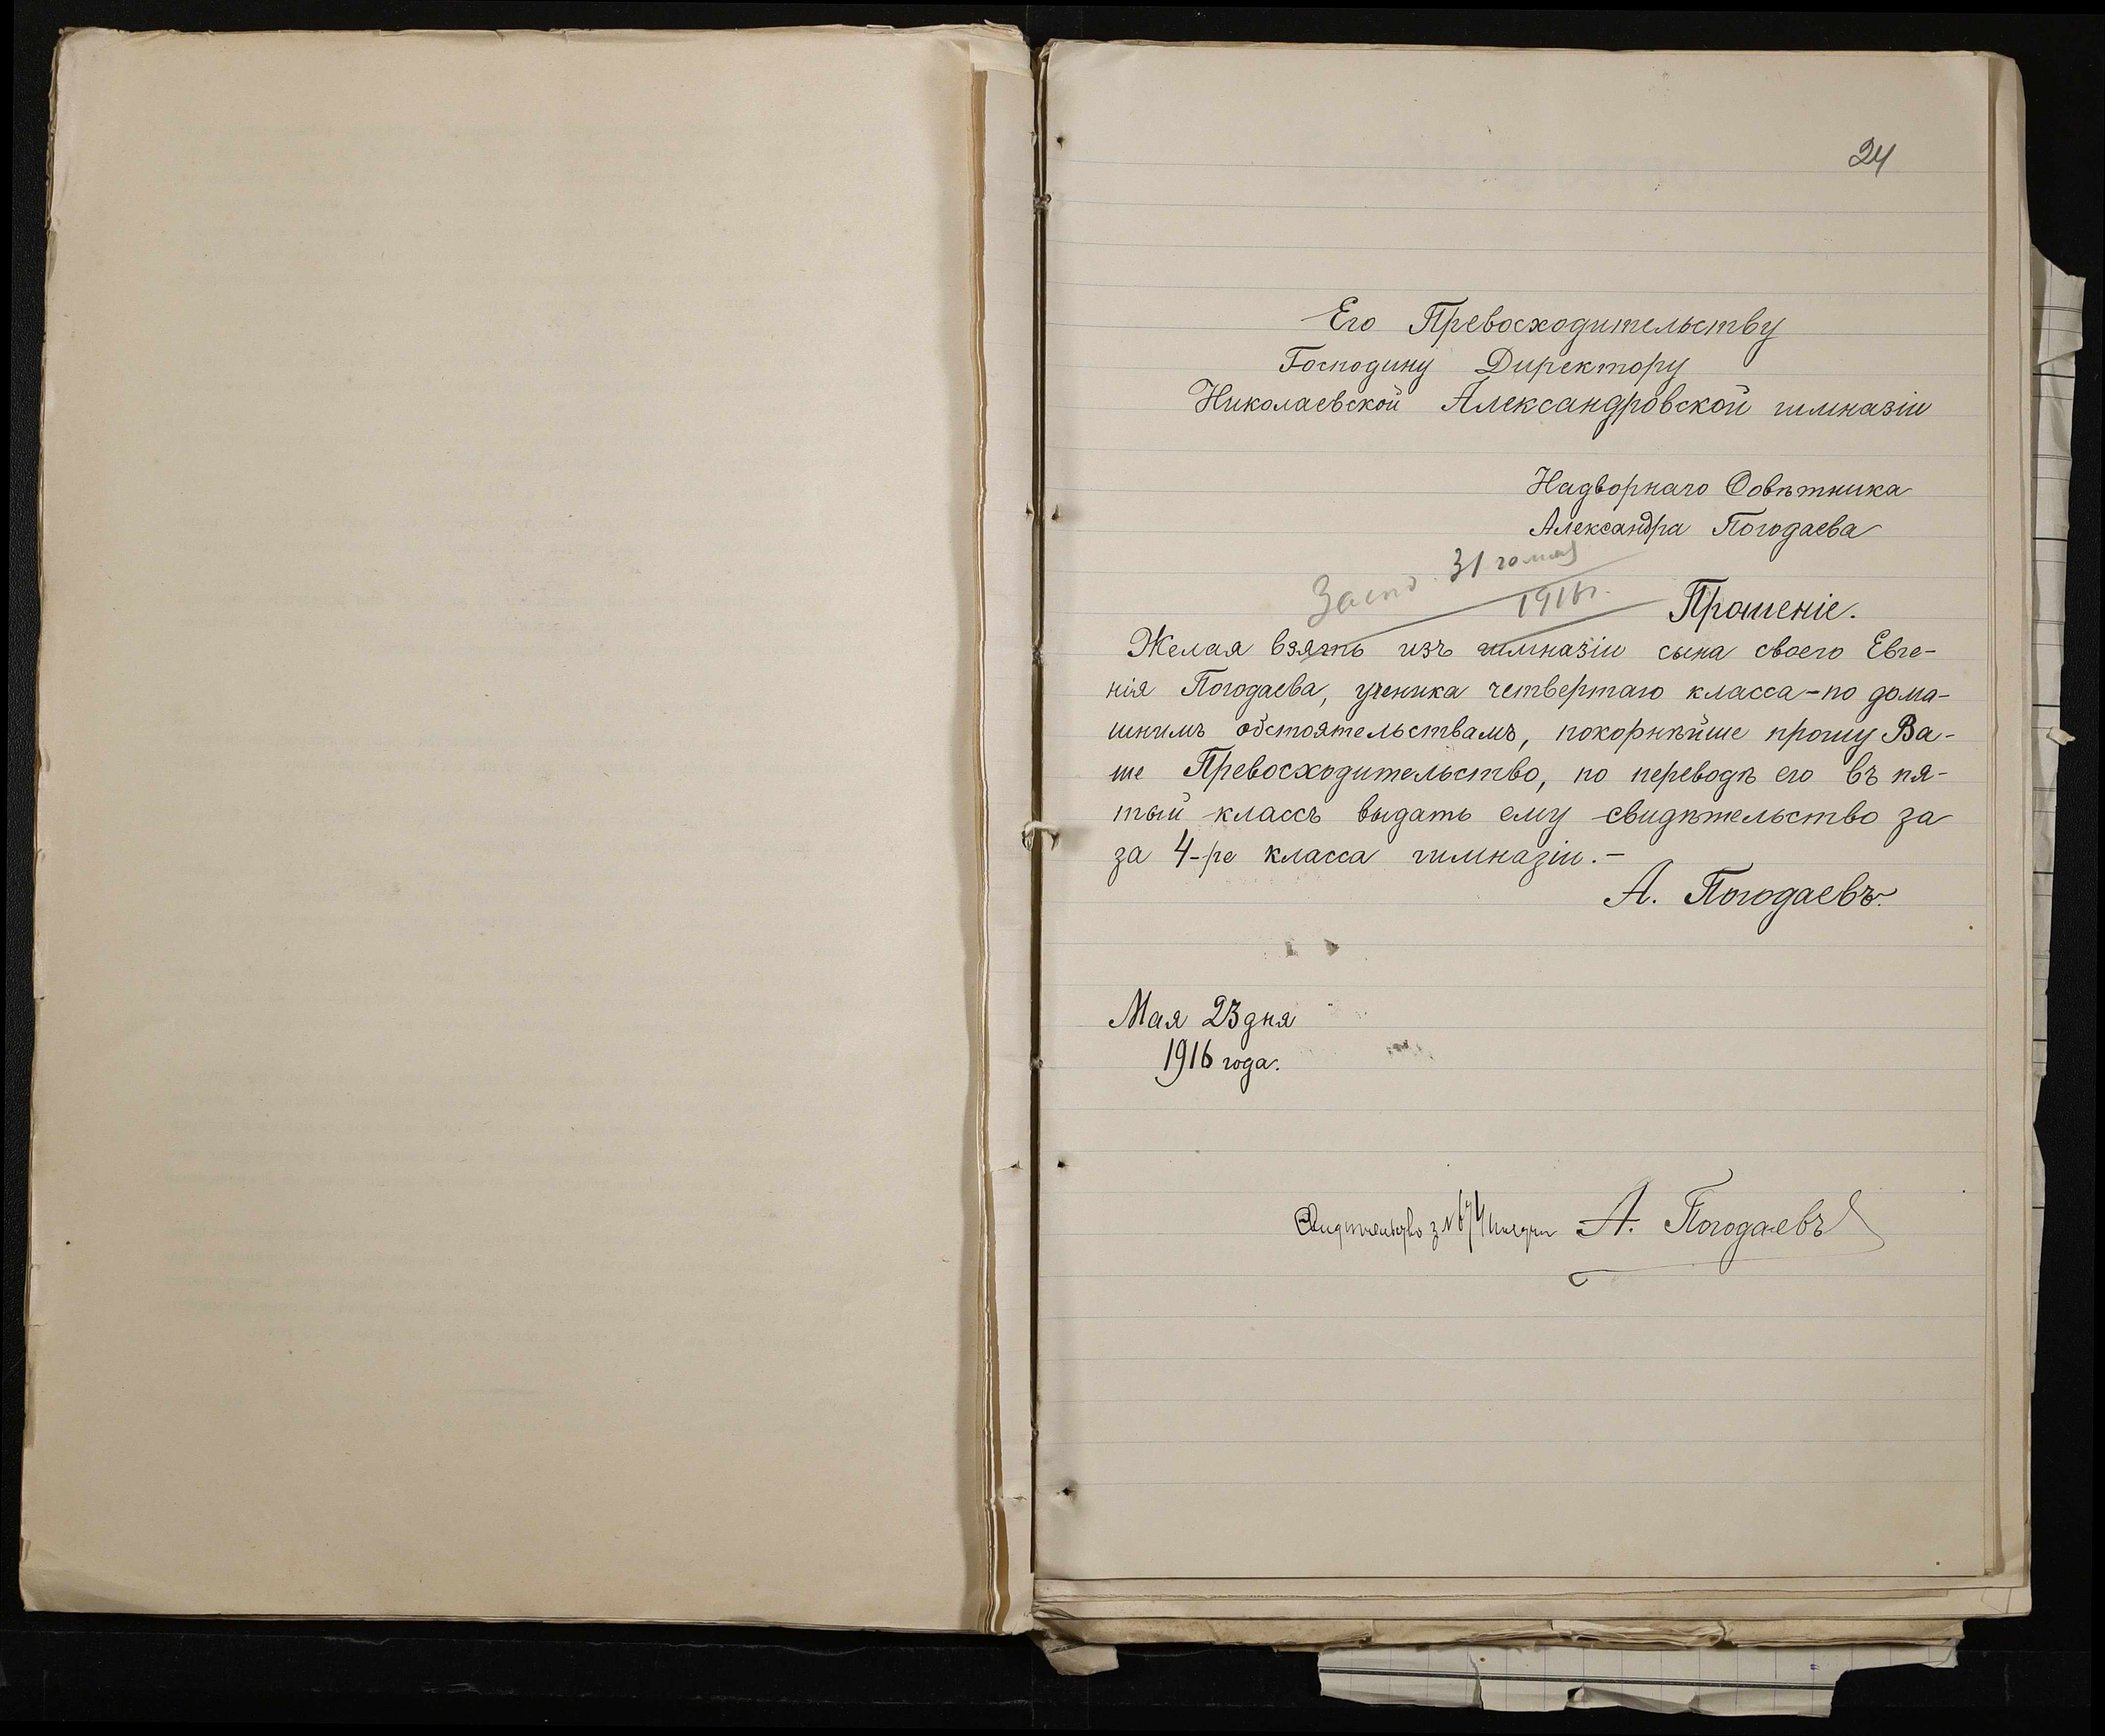 24
Его Превосходительству
Господину Директору
Николаевской Александровской гимназіи
Надворнаго Совѣтника
Александра Погодаева
31
1916 г.
Прошеніе.
Желая взять изъ гимназіи сына своего Евге-
нія Погодаева, ученика четвертаго класса - по дома-
шнимъ обстоятельствамъ, покорнѣйше прошу Ва-
ше Превосходительство, по переводѣ его въ пя-
тый классъ выдать ему свидѣтельство за
за 4-ре класса гимназіи. -
А. Погодаевъ.
Мая 23 дня
1916 года.
Свидѣтельство з № 674 получи А. Погодаевъ